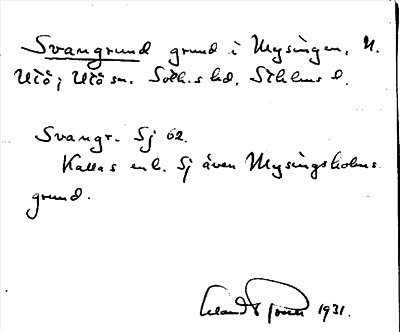 Svangrund grund i Mysingen, N.
Utö; Utö sn. Soth.s hd. Sthlms l.
Svangr. Sj 62.
Kallas enl. Sj även Mysingsholms
grund.
1931.